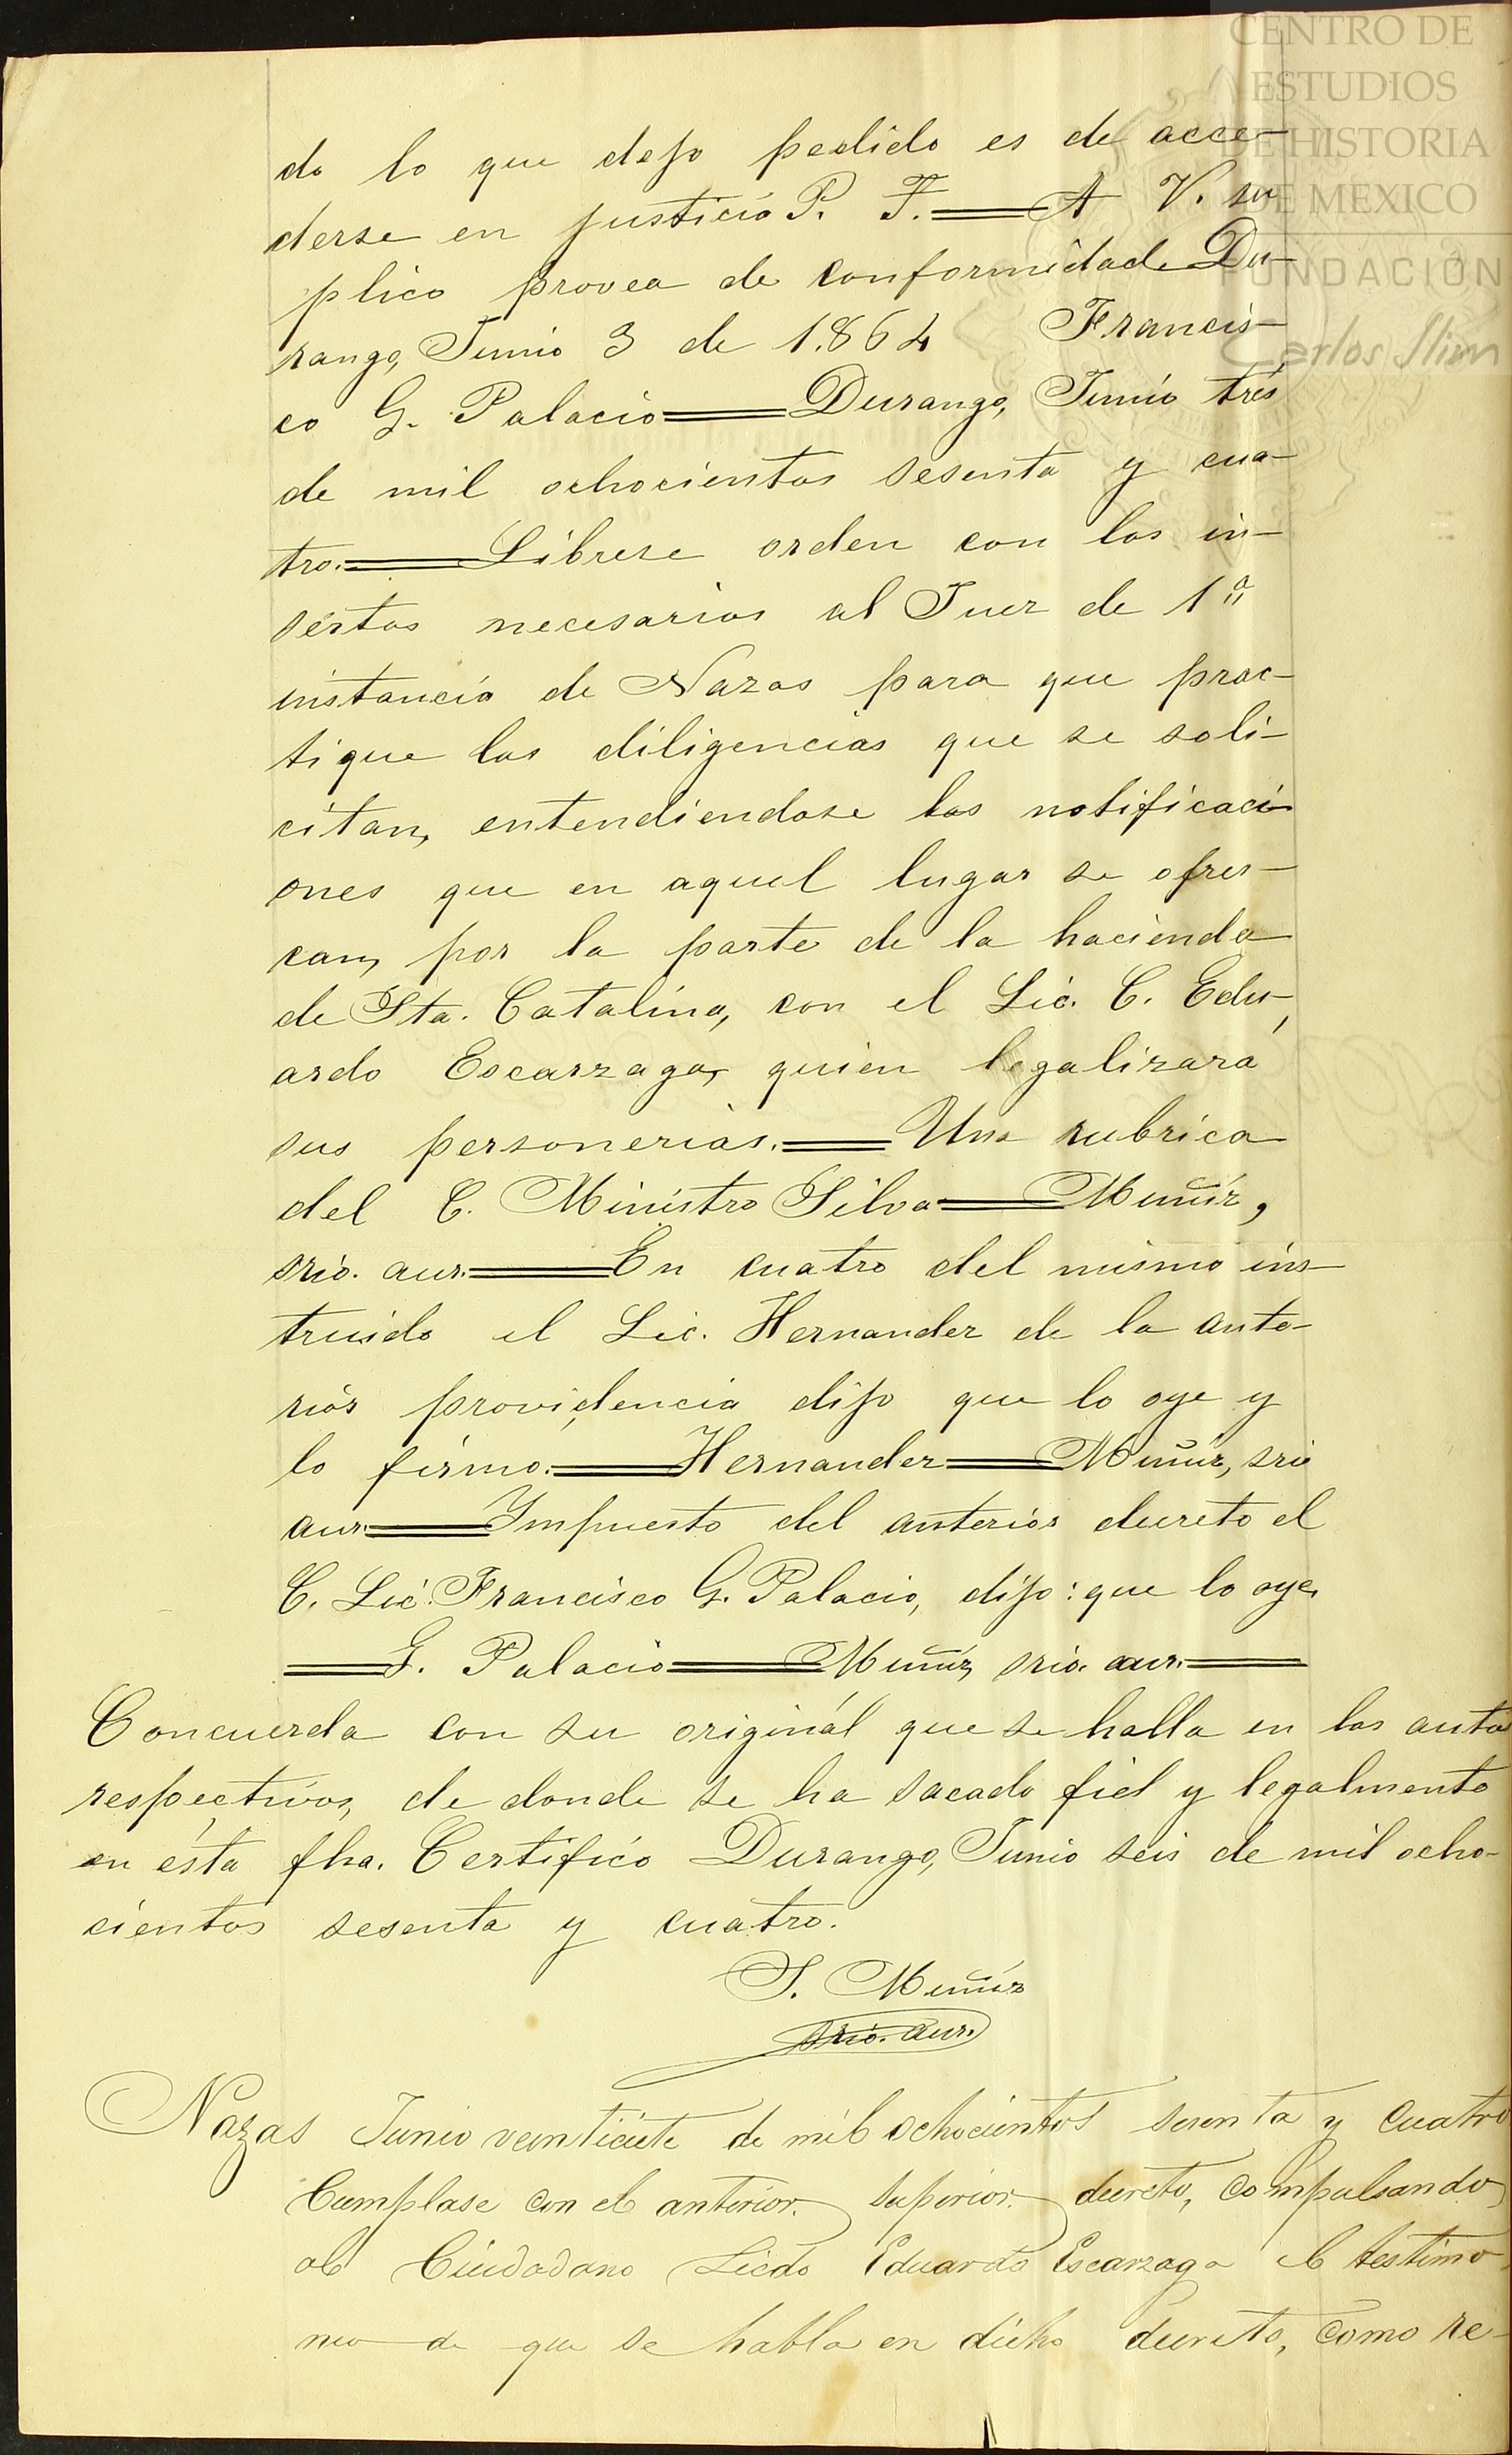 do lo que dejo pedido es de acce-
derse en justicia P. T. = A V. su
plico provea de conformidad. Du-
rango, Junio 3 de 1.864 Francis-
co G. Palacio = Durango, Junio tres
de mil ochocientos sesenta y cua-
tro. = Librese orden con los in-
sertos necesarios al Juez de 1ª
instancia de Nazas para que prac-
tique las diligencias que se soli-
citan, entendiendose las notificaci
ones que en aquel lugar se ofres-
can, por la parte de la hacienda
de Sta. Catalina, con el Lic. C. Edu-
ardo Escarzaga, quien legalizará
sus personerias. = Una rubrica
del C. Ministro Silva = Muñiz,
srio. aux. = En cuatro del mismo ins-
truido el Lic. Hernandez de la ante-
rior providencia dijo que lo oye y
lo firmó. = Hernandez = Muñiz, srio
aux. = Impuesto del anterior decreto el
C. Lic. Francisco G. Palacio, dijo: que lo oye,
= G. Palacio = Muñiz, srio. aux. =
Concuerda con su original que se halla en los autos
respectivos, de donde se ha sacado fiel y legalmente
en ésta fha. Certifico Durango, Junio seis de mil ocho-
cientos sesenta y cuatro.
S. Muñiz
srio. aux.
Nazas Junio veintisiete de mil ochocientos sesenta y cuatro
Cumplase con el anterior superior decreto, compulsando
al Ciudadano Licdo Eduardo Escarzaga el testimo-
nio de que se habla en dicho decreto, como re-
CENTRO DE
ESTUDIOS
DE HISTORIA
DE MEXICO
FUNDACIÓN
Carlos Slim